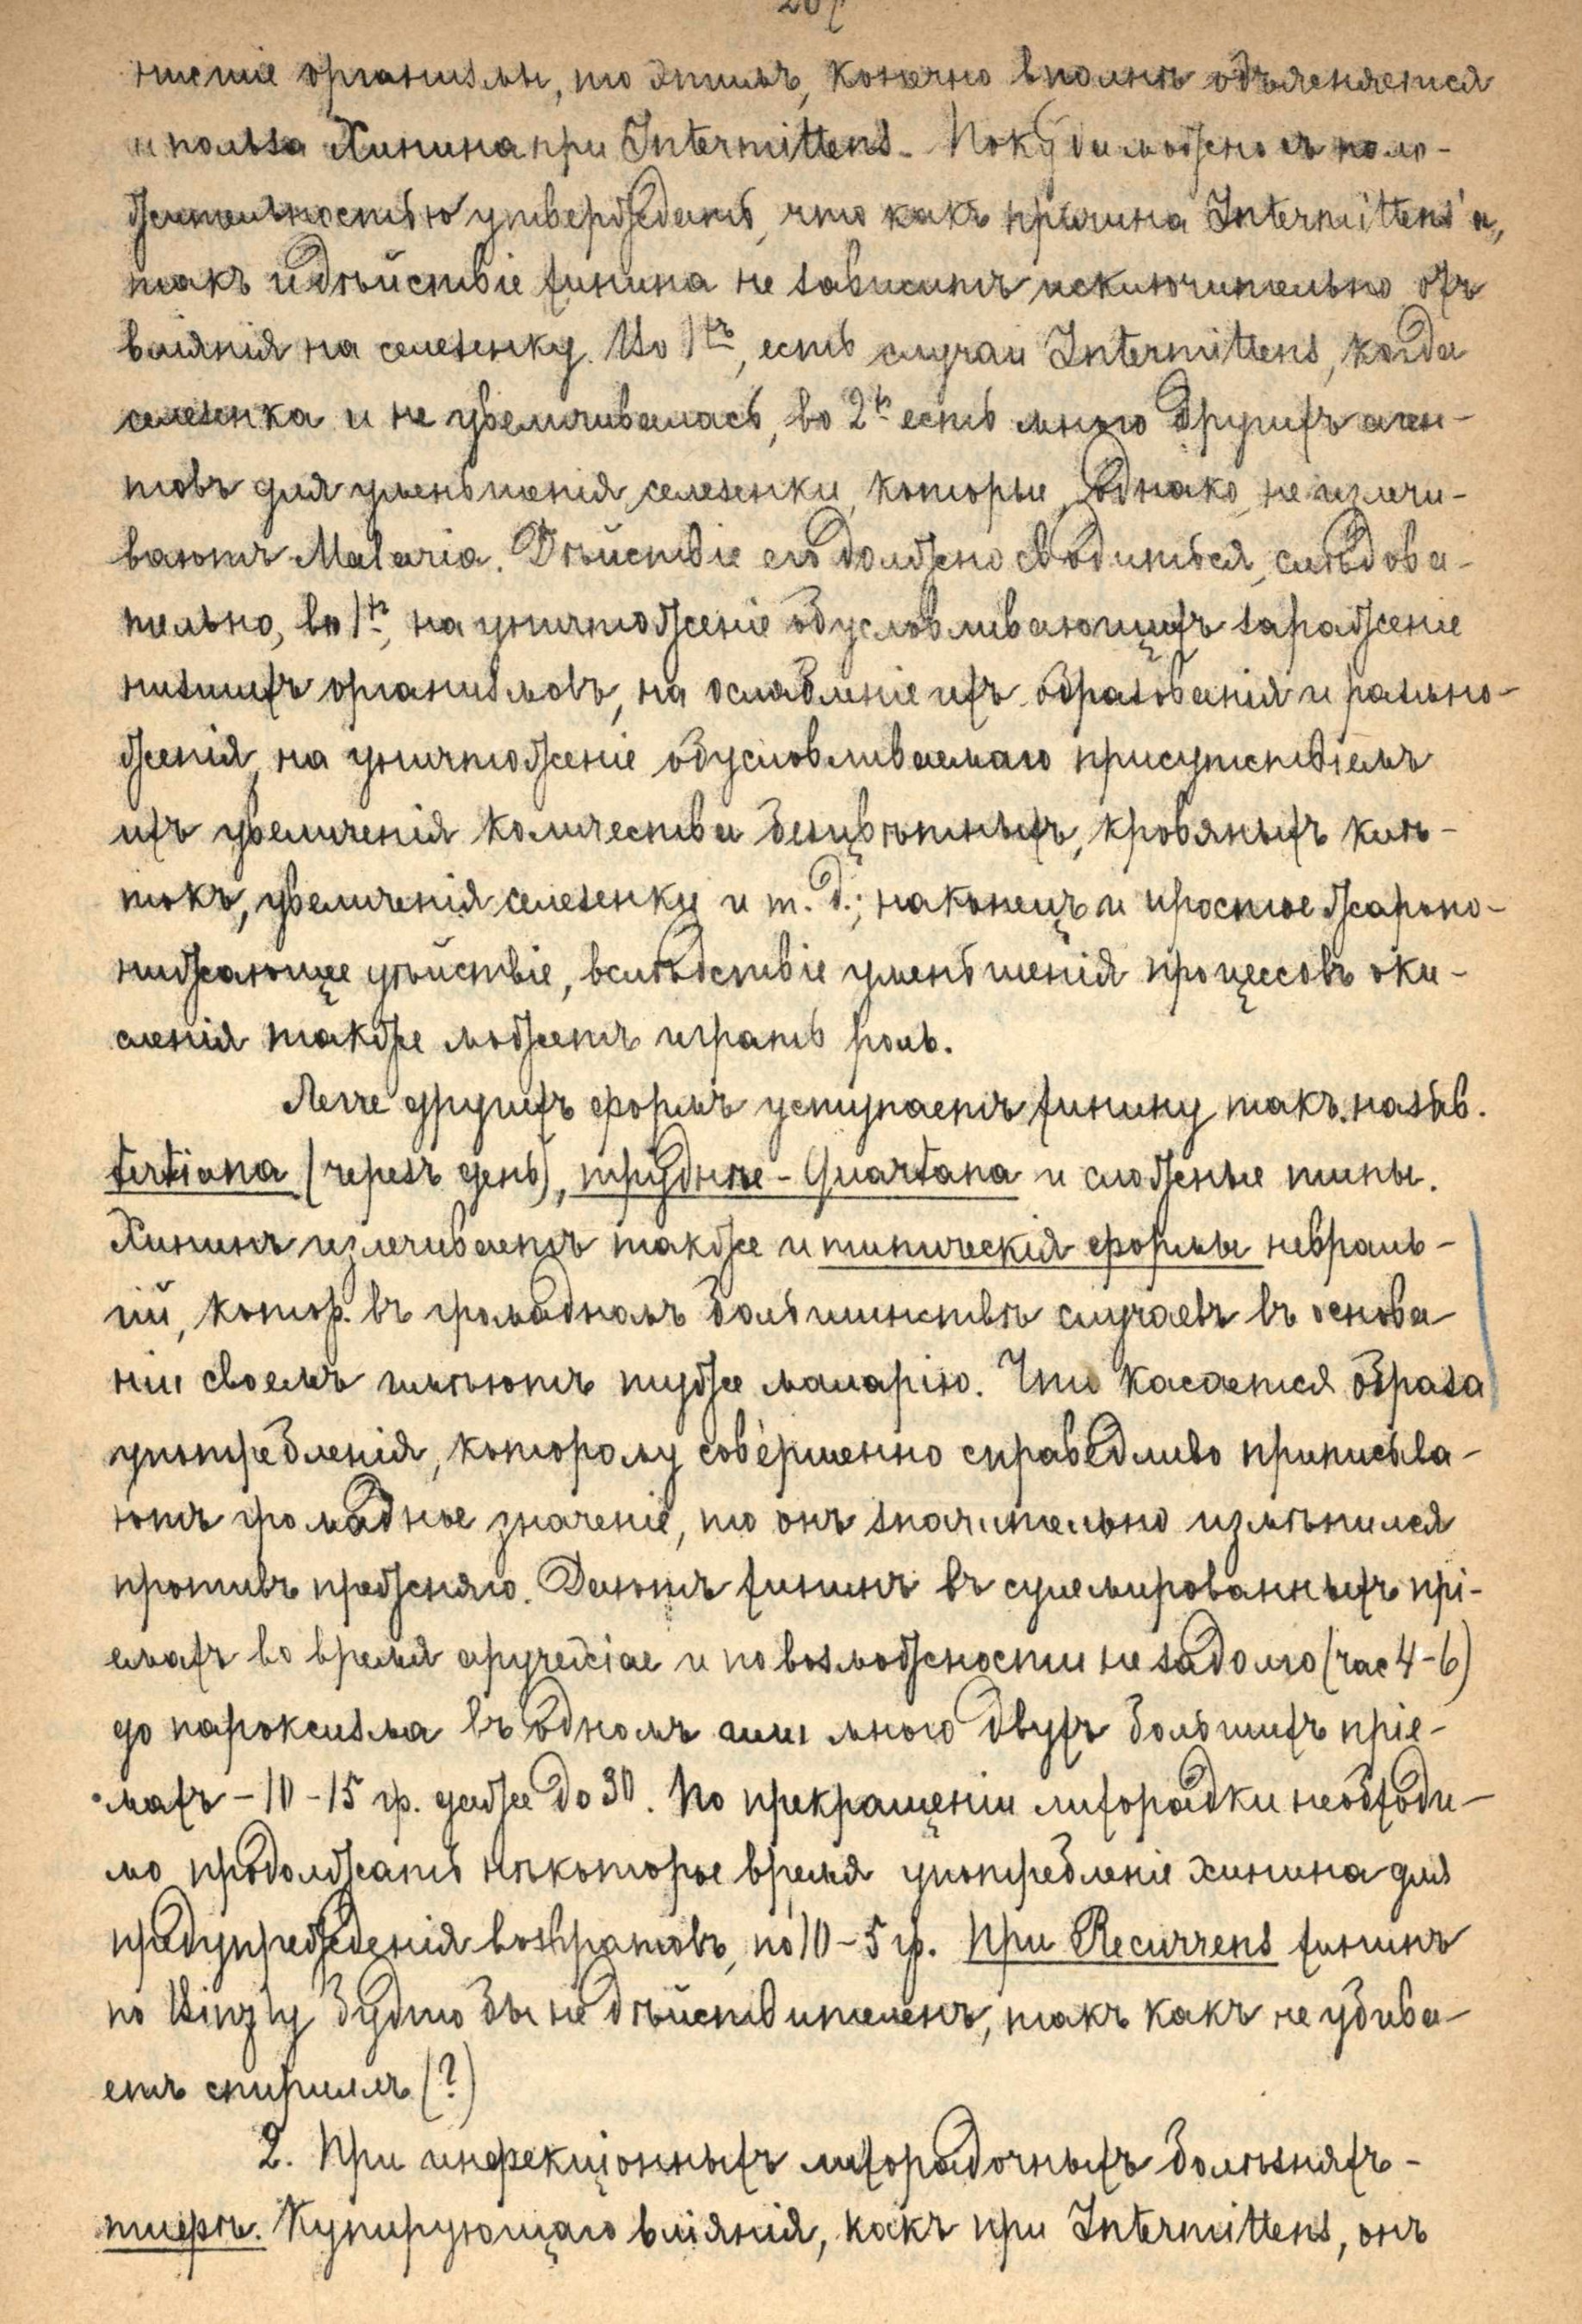 низшіе организмы, то этимъ, конечно вполнѣ объясняется
и польза Хинина при Intermittens. Покуда можно съ поло-
жительностью утверждать, что какъ причина Intermittens'а,
такъ и дѣйствіе хинина не зависитъ исключительно отъ
вліянія на селезенку. Во 1хъ, есть случаи Intermittens, когда
селезенка и не увеличивалась, во 2хъ есть много другихъ аген-
товъ для уменьшенія селезенки, которые, однако, не излечи-
ваютъ Malaria. Дѣйствіе его должно сводиться, слѣдова-
тельно, во 1хъ, на уничтоженіе обусловливающихъ зараженіе
низшихъ организмовъ, на ослабленіе ихъ образованія и размно-
женія, на уничтоженіе обусловливаемаго присутствіемъ
ихъ увеличенія количества безцвѣтныхъ, кровяныхъ клѣ-
токъ, увеличенія селезенки и т. д.; наконецъ и простое жаропо-
нижающее дѣйствіе, вслѣдствіе уменьшенія процессовъ оки-
сленія также можетъ играть роль.
Легче другихъ формъ уступаетъ хинину такъ назыв.
tertiana (черезъ день), труднѣе - Quartana и сложные типы.
Хининъ излечиваетъ также и типическія формы невраль-
гій, котор. въ громадномъ большинствѣ случаевъ въ основа
ніи своемъ имѣютъ туже маларію. Что касается образа
употребленія, которому совершенно справедливо приписыва-
ютъ громадное значеніе, то онъ значительно измѣнился
противъ прежняго. Даютъ хининъ въ суммированныхъ прі-
емахъ во время apyrexiae и по возможности незадолго (час 4-6)
до пароксизма въ одномъ или много двухъ большихъ пріе-
махъ - 10-15 гр. даже до 30. По прекращеніи лихорадки необходи-
мо продолжать нѣкоторое время употребленіе хинина для
предупрежденія возвратовъ, по 10-5 гр. При Recurrens хининъ
по Binz'у будто бы не дѣйствителенъ, такъ какъ не убива-
етъ спириллъ (?)
2. При инфекціонныхъ лихорадочныхъ болѣзняхъ -
тифѣ. Купирующаго вліянія, какъ при Intermittens, онъ